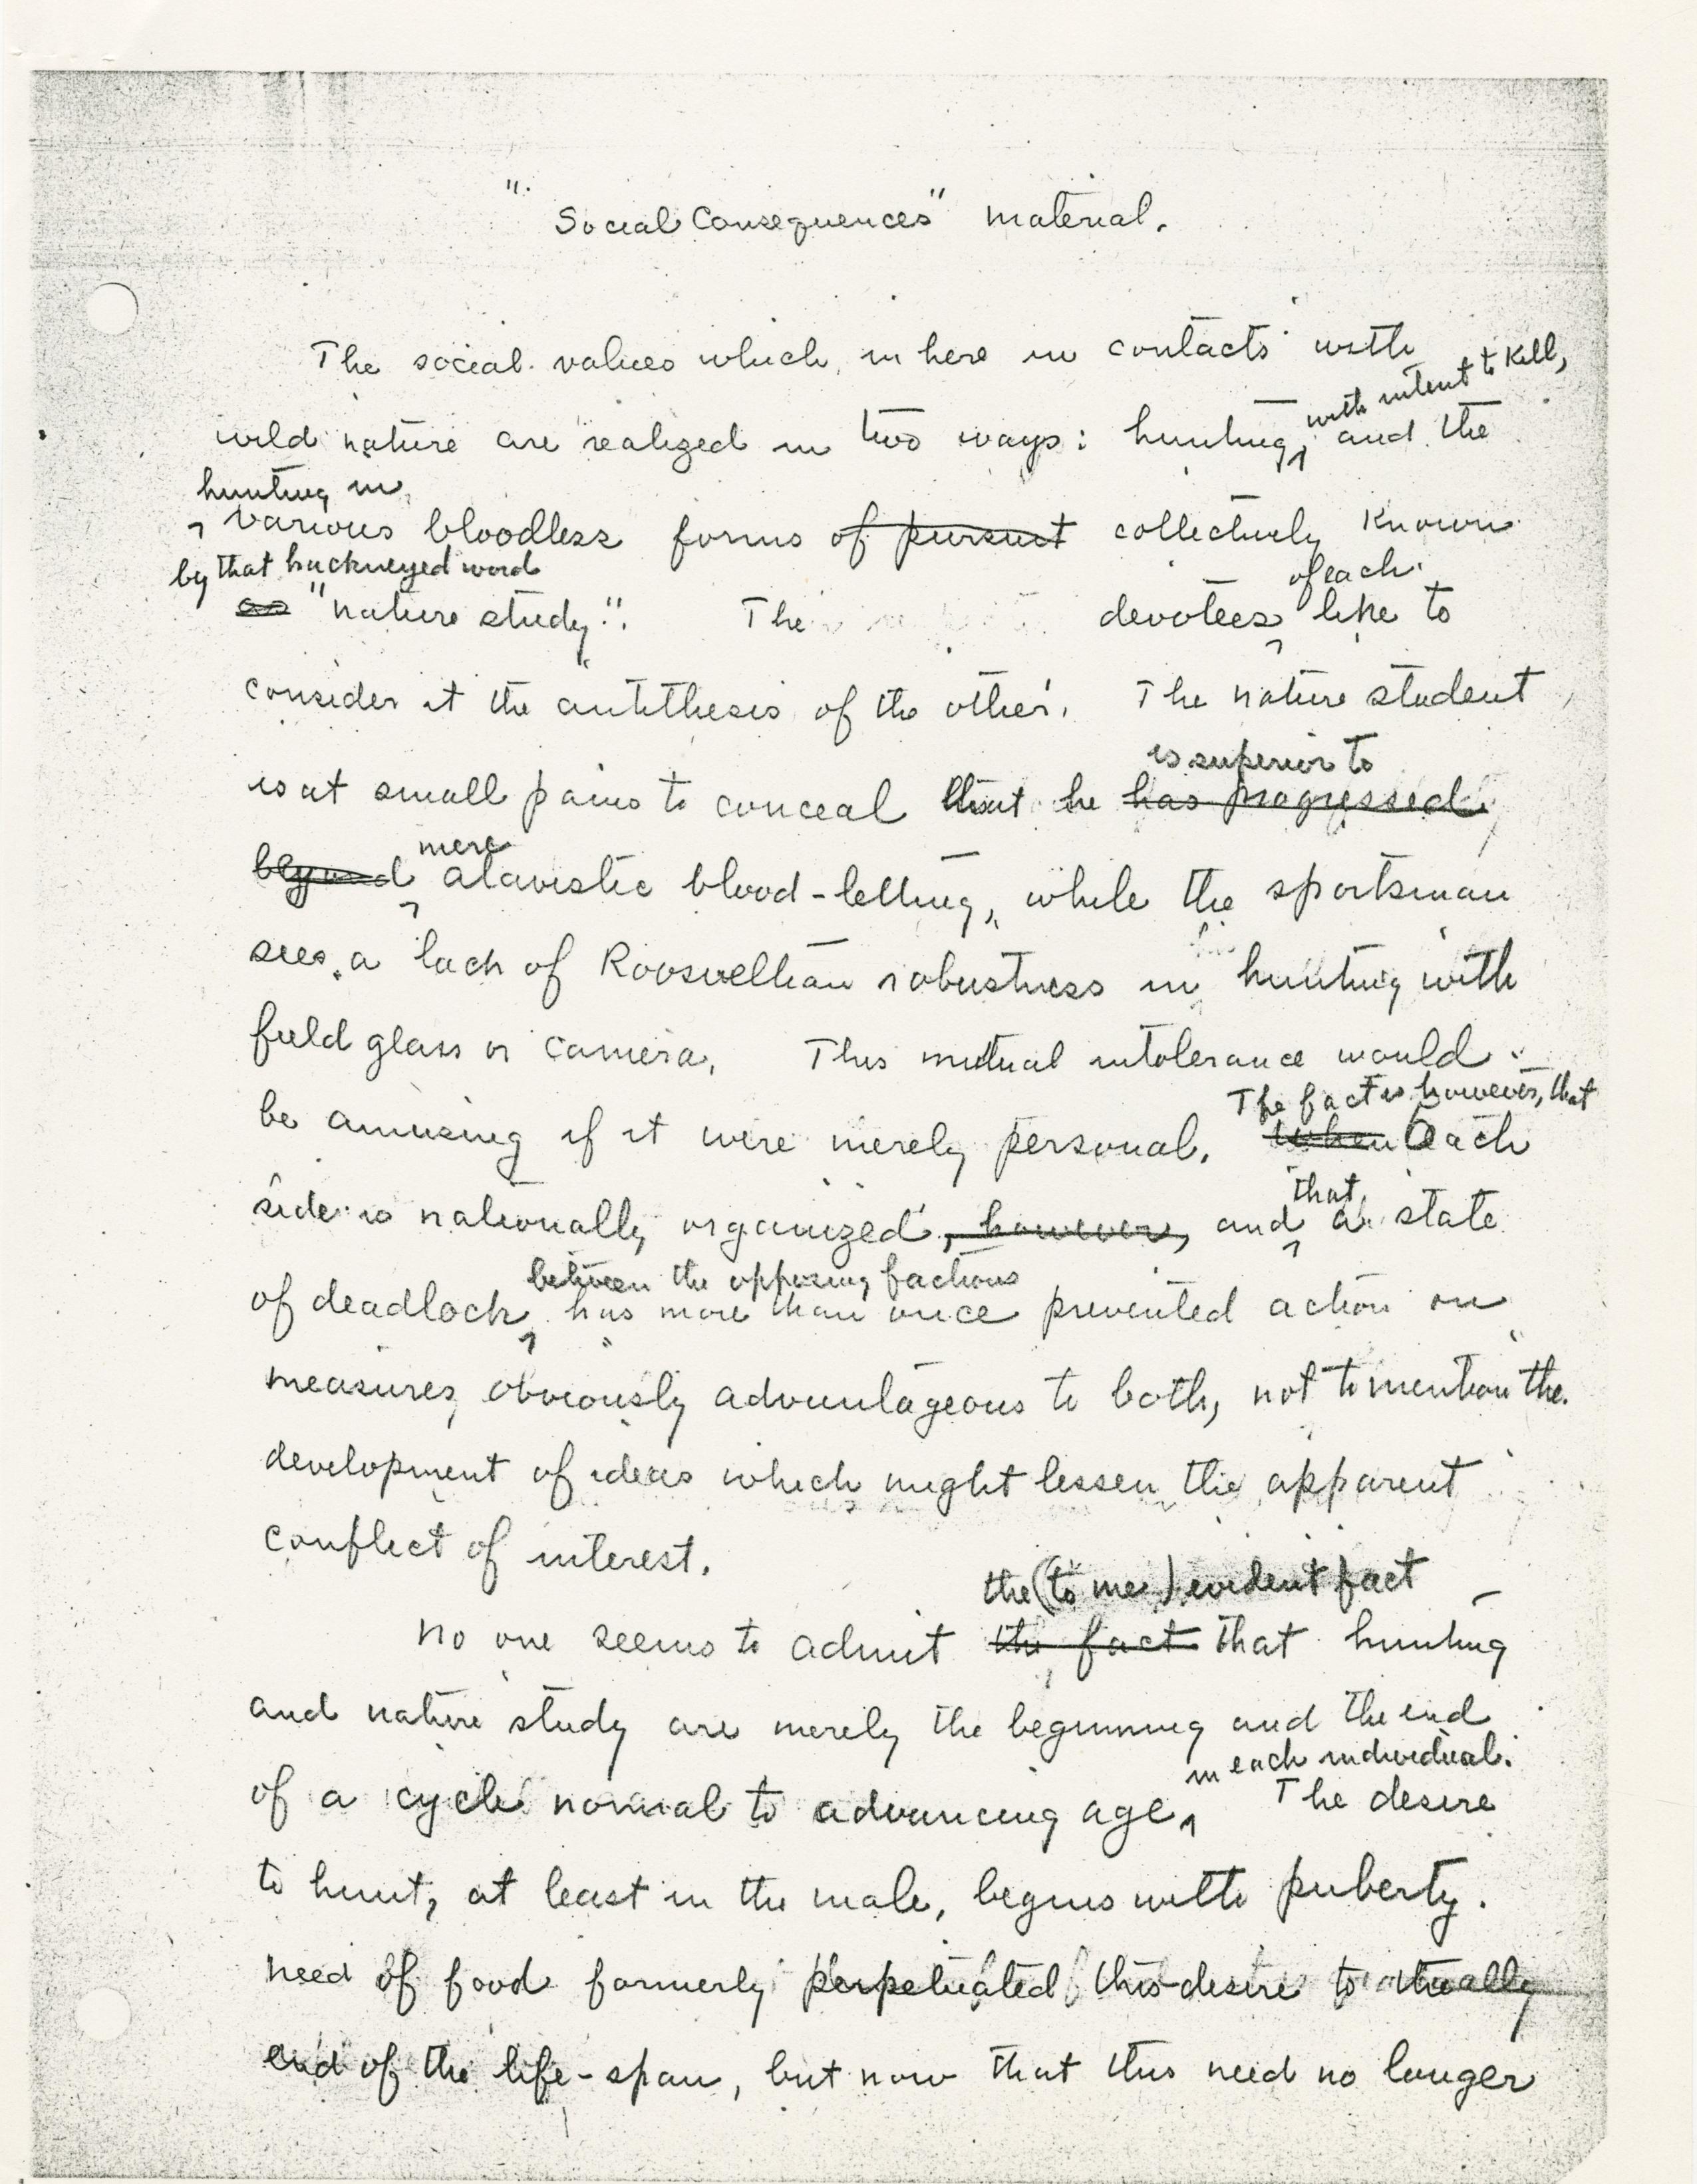 "Social Consequences" material.
The social values which inhere in contacts with
with intent to kill,
wild nature are realized in two ways: hunting, and the
hunting in
various bloodless forms of pursuit collectively known
by that hackneyed word
of each
as "nature study". The devotees like to
consider it the antithesis of the other. The nature student
is superior to
is at small pains to conceal that he has progressed
mere
beyond atavistic blood-letting, while the sportsman
sees a lack of Roosveltian robustness in hunting with
field glass or camera. This mutual intolerance would
The fact is however, that
be amusing if it were merely personal. When Each
that
side is nationally organized, however, and a state
between the opposing factions
of deadlock has more than once prevented action on
measures obviously advantageous to both, not to mention the
development of ideas which might lessen the apparent
conflict of interest.
the (to me) evident fact
No one seems to admit the fact that hunting
and nature study are merely the beginning and the end
in each individual.
of a cycle normal to advancing age. The desire
to hunt, at least in the male, begins with puberty.
need of food formerly perpetuated this desire to
end of the life-span, but now that this need no longer